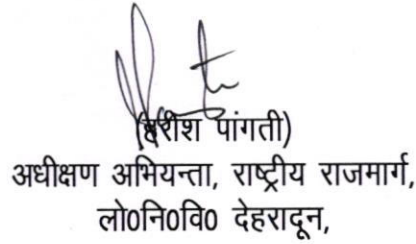 (हरीश पांगती)
अधीक्षण अभियन्ता, राष्ट्रीय राजमार्ग,
लो0नि0वि0 देहरादून,